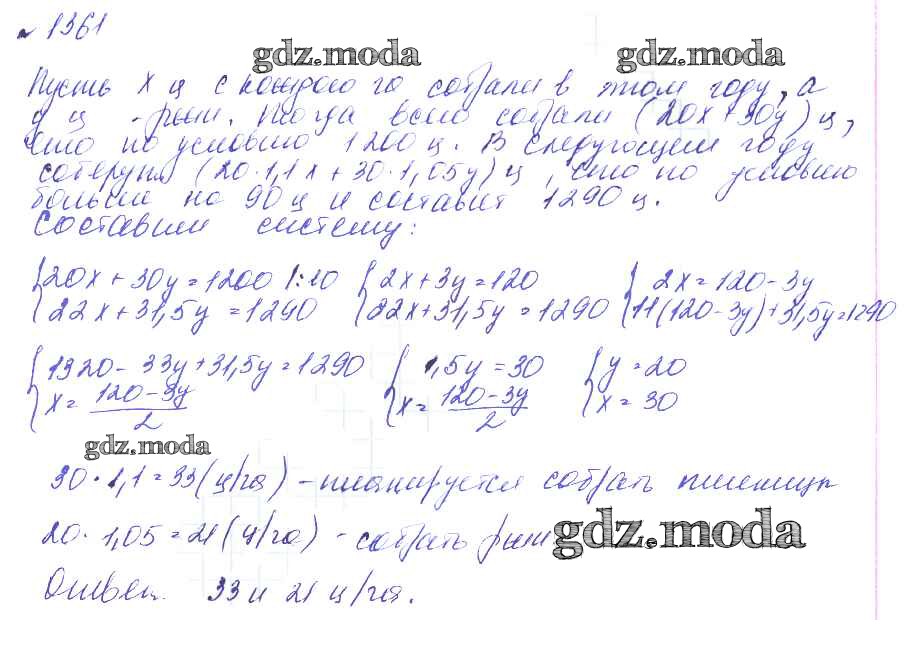 № 1361
gdz.moda gdz.moda
Пусть x ц с каждого га собрали в этом году, а
y ц - ржи. Тогда всего собрали (20x + 30y) ц,
что по условию 1200 ц. В следующем году
соберут (20·1,1x + 30·1,05y) ц, что по условию
больше на 90 ц и составит 1290 ц.
Составим систему:
{20x + 30y = 1200 |:10 {2x + 3y = 120 {2x = 120 - 3y
{22x + 31,5y = 1290 {22x + 31,5y = 1290 {11(120 - 3y) + 31,5y = 1290
{1320 - 33y + 31,5y = 1290 {1,5y = 30 {y = 20
{x = (120 - 3y)/2 {x = (120 - 3y)/2 {x = 30
gdz.moda
30 · 1,1 = 33 (ц/га) - планируется собрать пшеницы
20 · 1,05 = 21 (ц/га) - собрать ржи gdz.moda
Ответ. 33 и 21 ц/га.